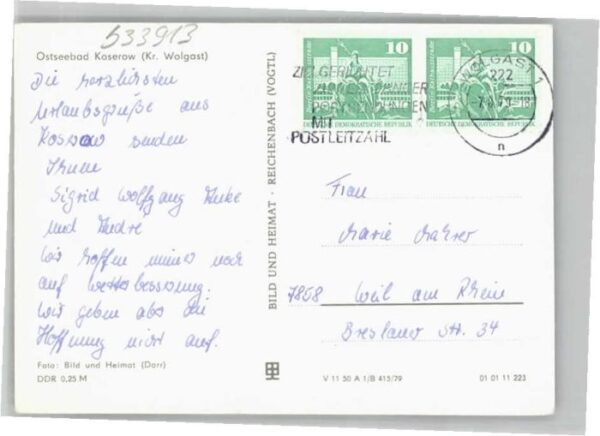 533913
Ostseebad Koserow (Kr. Wolgast)
Die herzlichsten
Urlaubsgrüße aus
Koserow senden
Ihnen
Sigrid Wolfgang Anke
und André
Wir hoffen immer noch
auf Wetterbesserung.
Wir geben aber die
Hoffnung nicht auf.
Foto: Bild und Heimat (Darr)
DDR 0,25 M
BILD UND HEIMAT · REICHENBACH (VOGTL)
10
10
DEUTSCHE DEMOKRATISCHE REPUBLIK
DEUTSCHE DEMOKRATISCHE REPUBLIK
MIT
POSTLEITZAHL
WOLGAST 1
222
n
Frau
Marie
7858 Weil am Rhein
Breslauer Str. 34
V 11 50 A 1/B 415/79
01 01 11 223